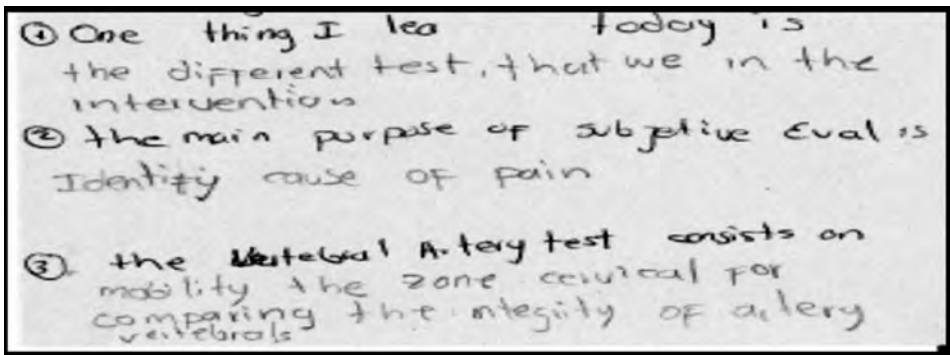 ① One thing I lea today is
the different test, that we in the
intervention
② the main purpose of subjetive Eval is
Identify cause of pain
③ the Vertebral Artery test consists on
mobility the zone cervical for
comparing the integrity of artery
vertebrals